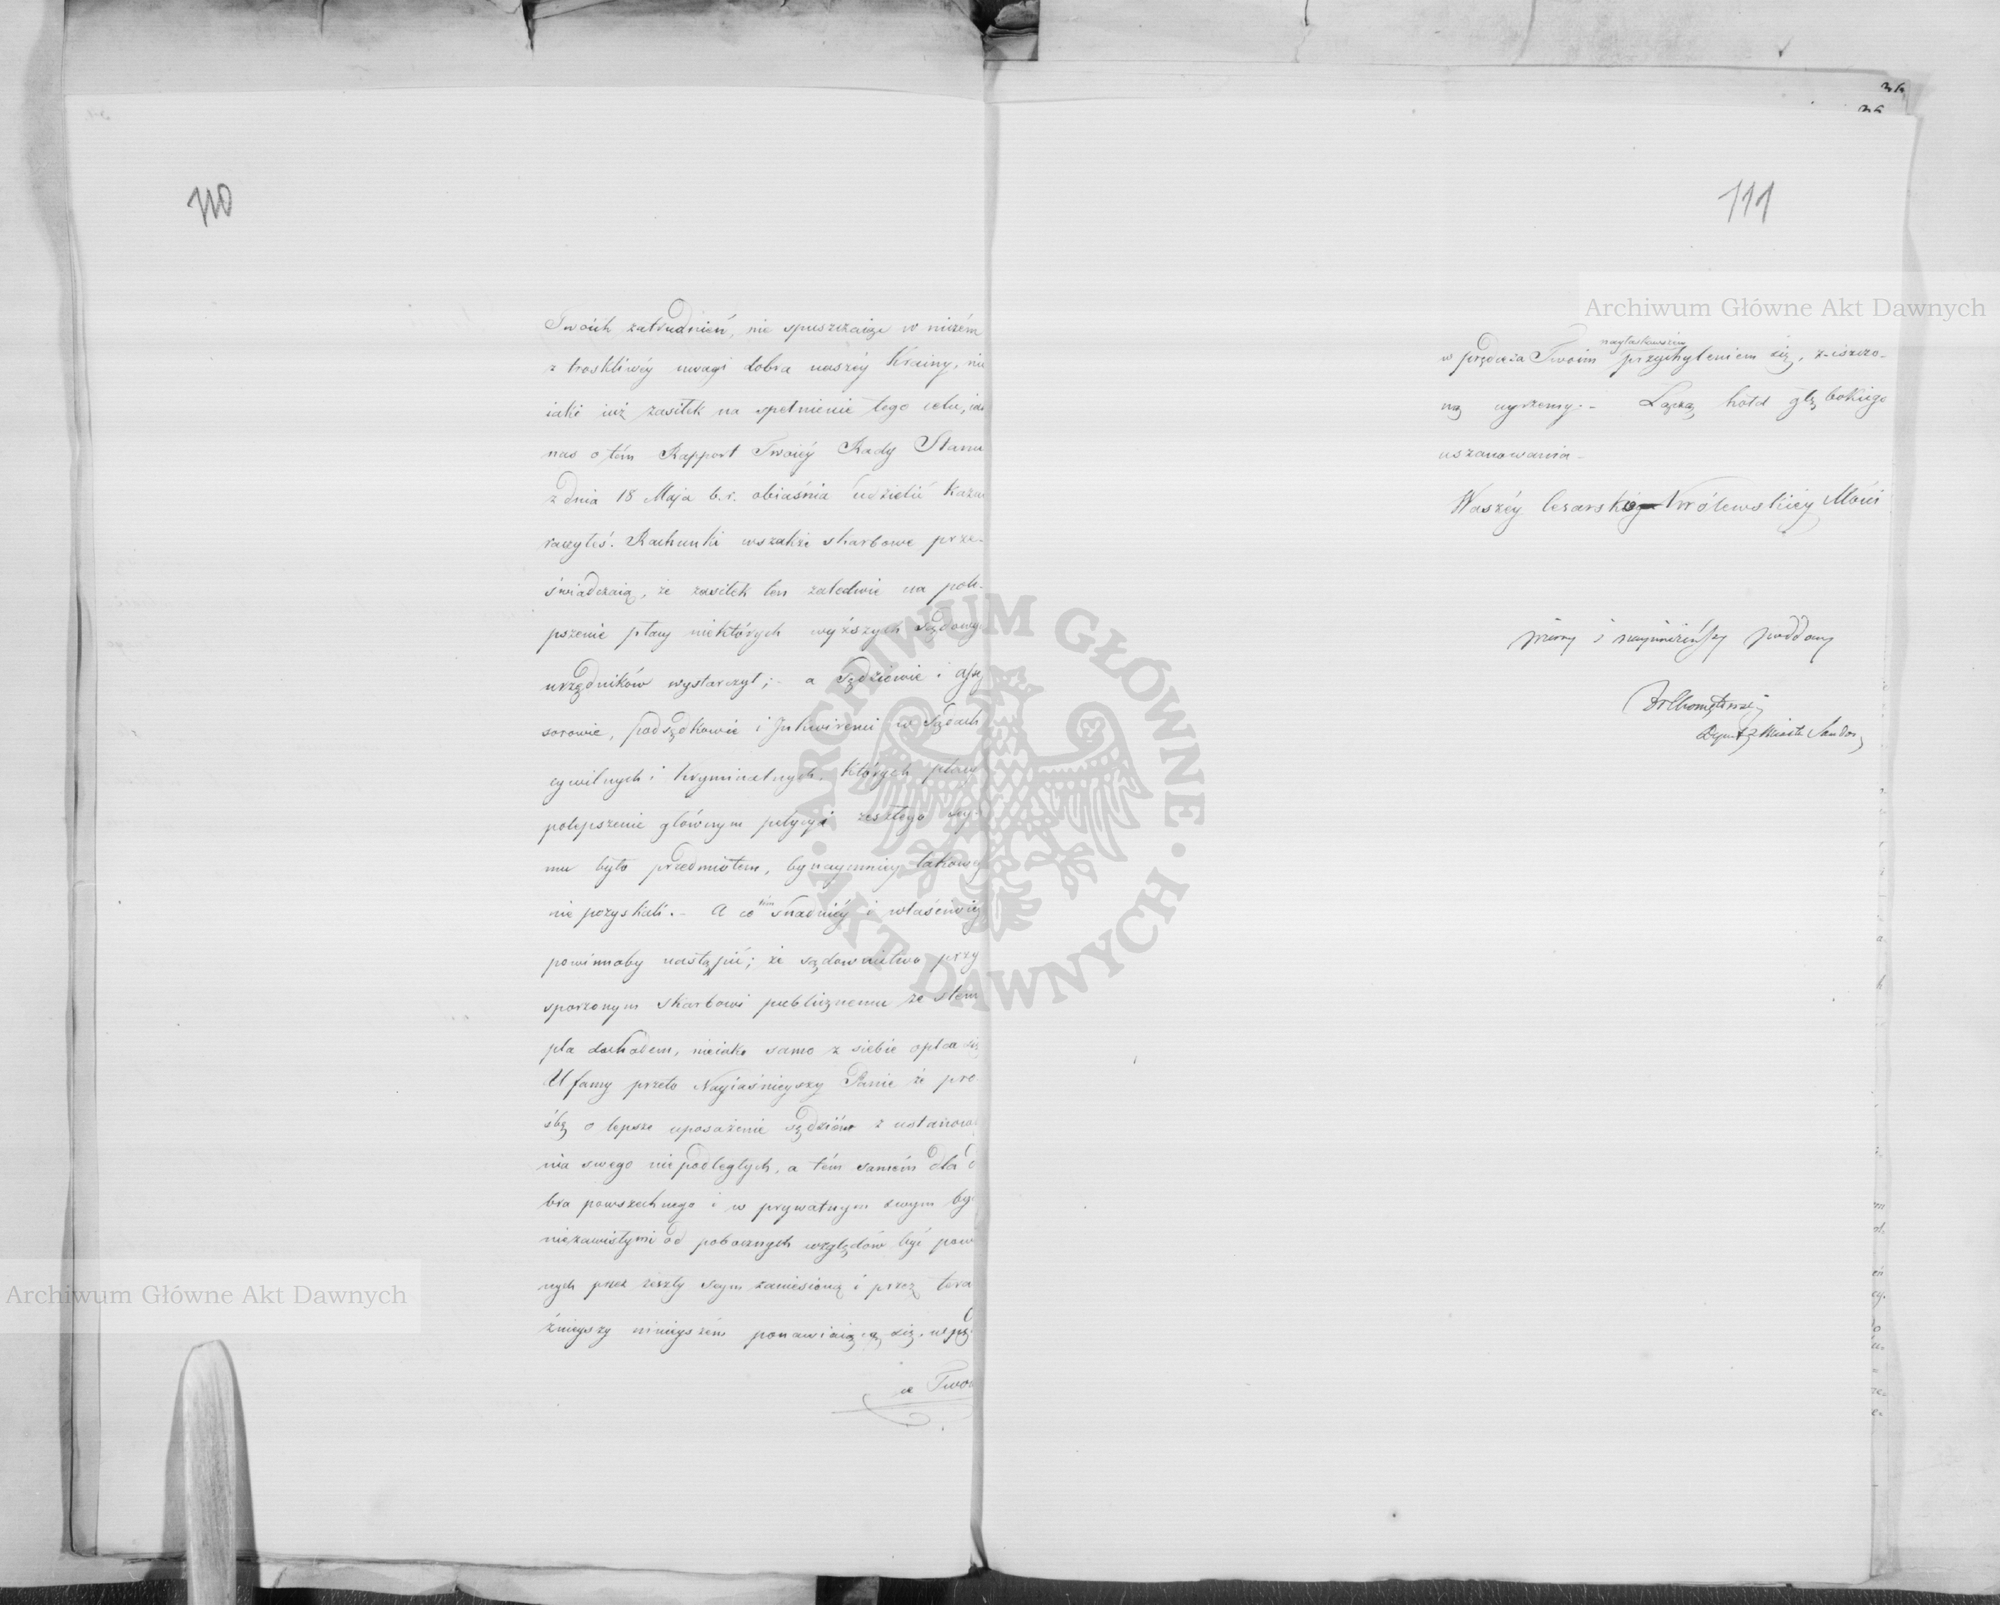 110
Twoich zatrudnień, nie spuszczaiąc w niczém
z troskliwéy uwagi dobra naszéy Krainy, nie
iaki iuż zasiłek na spełnienie tego celu, iak
nas o tém Rapport Twoiéy Rady Stanu
z dnia 18 Maja b.r. obiaśnia udzielić kazać
raczyłeś. Rachunki wszakże skarbowe prze-
świadczaią, że zasiłek ten zaledwie na pole-
pszenie płacy niektórych wyższych sądowy
urzędników wystarczył; - a Sędziowie i Asse
sorowie, podsędkowie i Inkwirenci w Sądach
cywilnych i kryminalnych, których płacy
polepszenie głównym petycyi zeszłego sey-
mu było przedmiotem, bynaymniey takowey
nie pozyskali. - A co tém snadniéy i właściwiéy
powinnoby nastąpić; że sądownictwo przy
sporzonym skarbowi publicznemu ze stem
pla dochodem, nieiako samo z siebie opłaca się
Ufamy przeto Nayiaśnieyszy Panie że pro-
śbę o lepsze uposażenie sędziów z ustanowie
nia swego niepodległych, a tém samém dla do
bra powszechnego i w prywatnym swym by-
niezawisłymi od pobocznych względów być pow
nych przez zeszły seym zaniesioną i przez tera
źnieyszy ninieyszém ponawiaiącą się, wspa-
w Twoi
36
36
111
Archiwum Główne Akt Dawnych
nayłaskawszém
w Twoim przychyleniem się, ziszczo-
ną uyrzemy. - Łączą hołd głębokiego
uszanowania -
Waszéy Cesarsko Królewskiey Mości
wierny i nayniższy poddany
Deput. z Miasta Sandom
ARCHIWUM GŁÓWNE · AKT DAWNYCH ·
Archiwum Główne Akt Dawnych